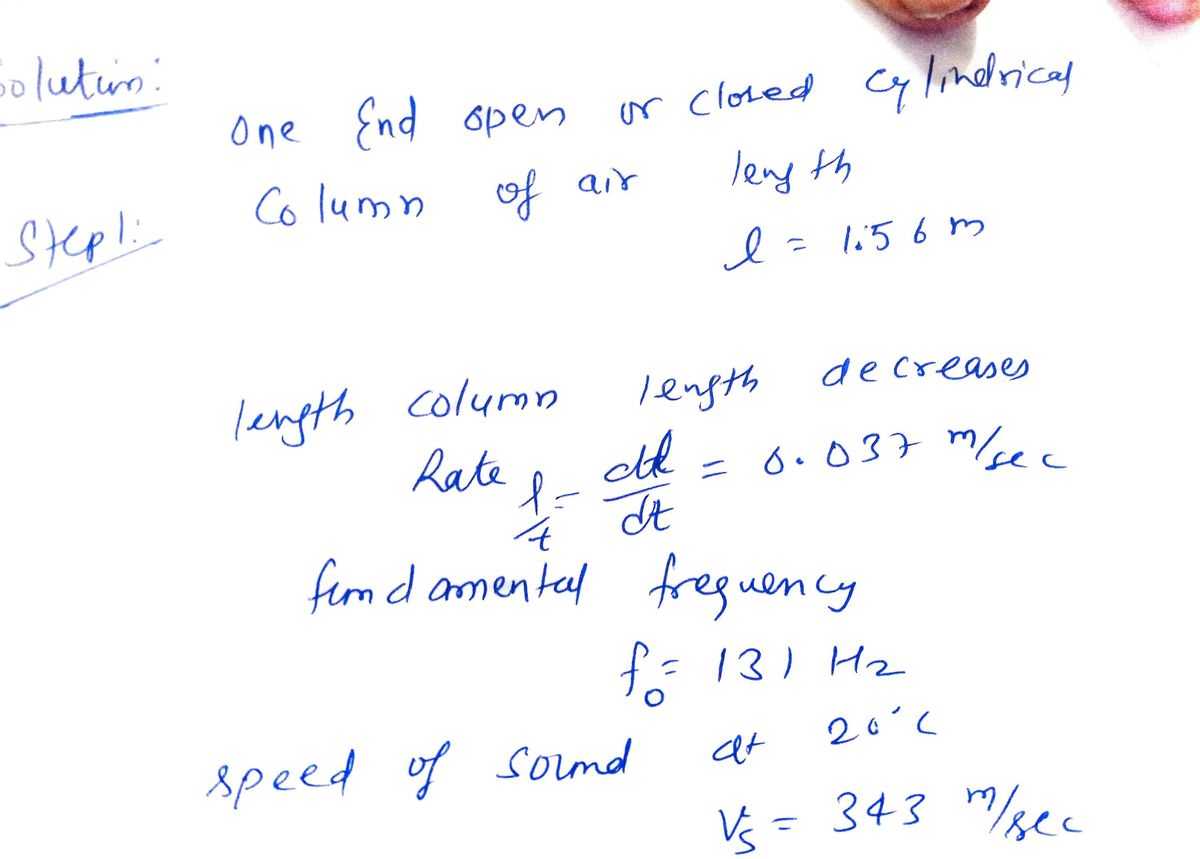 Solution:
One End open or closed cylindrical
Step1:
Column of air length
l = 1.56 m
length column length decreases
Rate l/t = dl/dt = 0.037 m/sec
fundamental frequency
f₀ = 131 Hz
speed of sound at 20°C
Vs = 343 m/sec